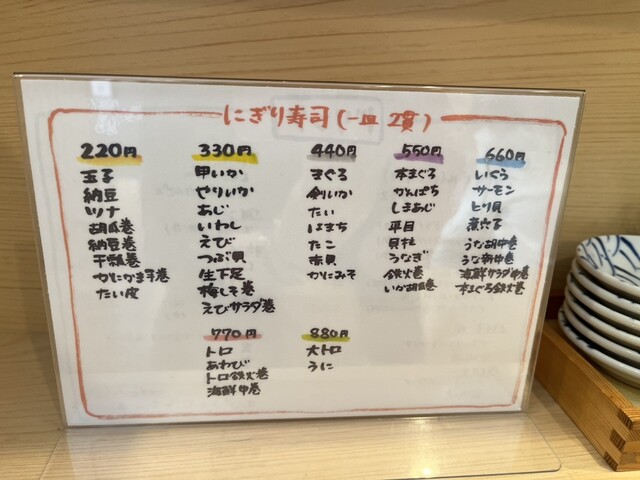 にぎり寿司(一皿 2貫)
220円
玉子
納豆
ツナ
胡瓜巻
納豆巻
干瓢巻
かにかま手巻
たい皮
330円
甲いか
やりいか
あじ
いわし
えび
つぶ貝
生下足
梅しそ巻
えびサラダ巻
440円
まぐろ
剣いか
たい
はまち
たこ
赤貝
かにみそ
550円
本まぐろ
かんぱち
しまあじ
平目
貝柱
うなぎ
鉄火巻
いか胡瓜巻
660円
いくら
サーモン
とり貝
煮穴子
うな胡中巻
うな新中巻
海鮮サラダ中巻
本まぐろ鉄火巻
770円
トロ
あわび
トロ鉄火巻
海鮮中巻
880円
大トロ
うに